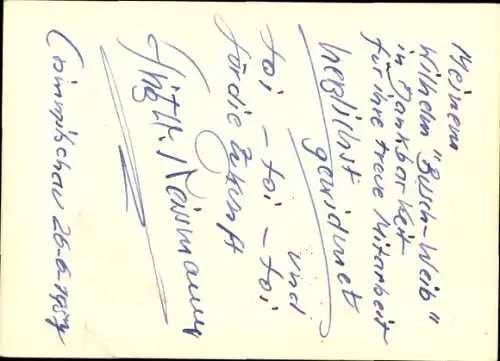 Meinem
Wilhelm "Busch-Weib"
in Dankbarkeit
für ihre treue Mitarbeit
herzlichst
gewidmet
und
toi - toi - toi
für die Zukunft
Crimmitschau 26-6-1957